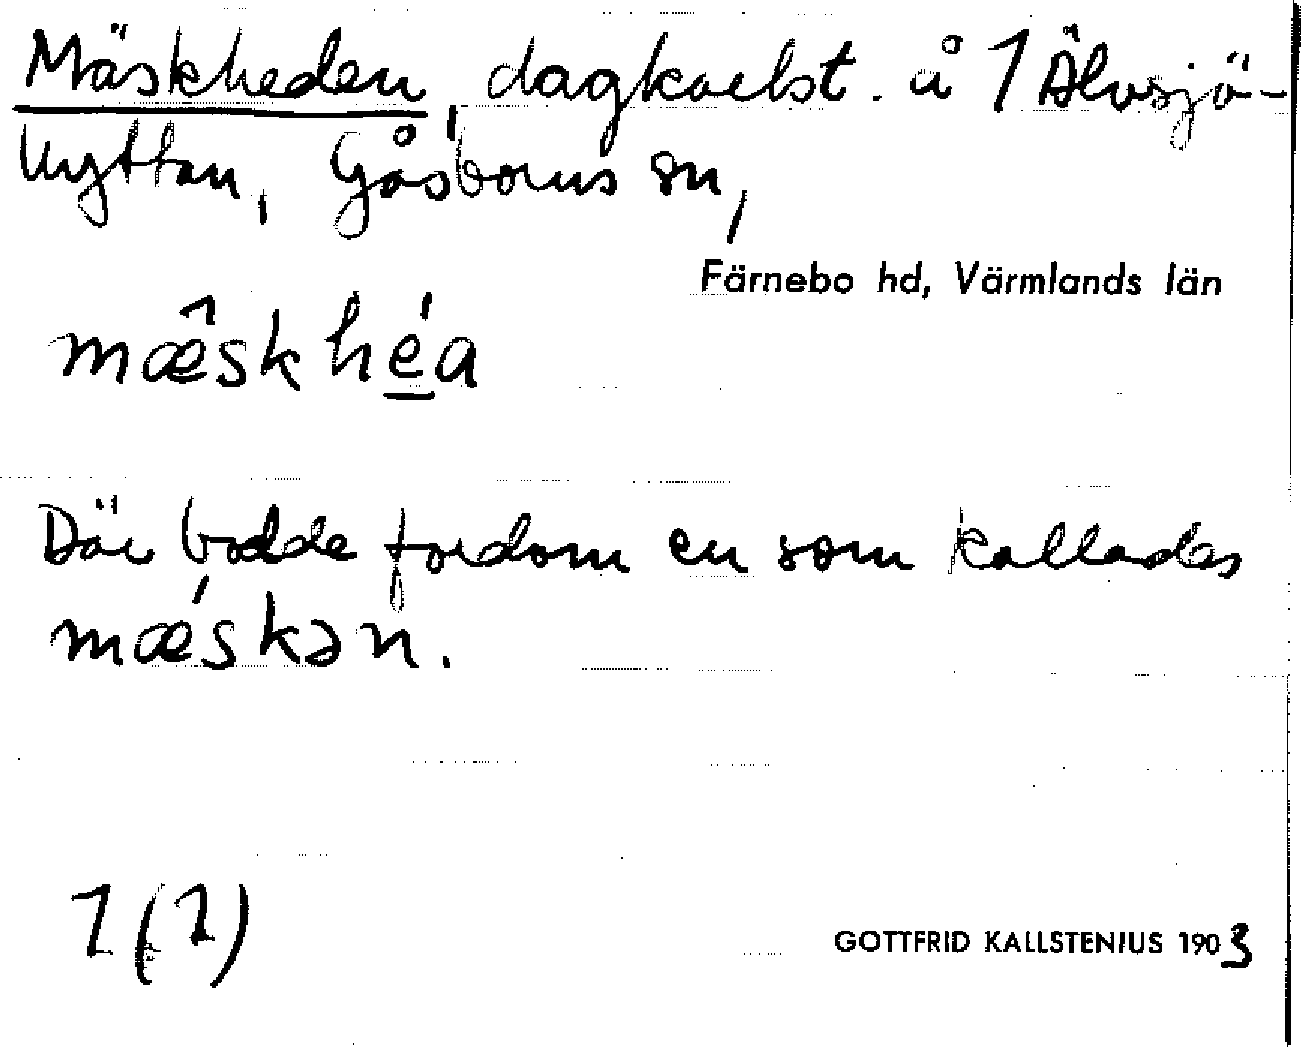 Mäskheden, dagkarlst. å 1 Älvsjö-
hyttan, Gåsborns sn,
Färnebo hd, Värmlands län
mæ̂skhéa
Där bodde fordom en som kallades
mǽskən.
1(1)
GOTTFRID KALLSTENIUS 1903